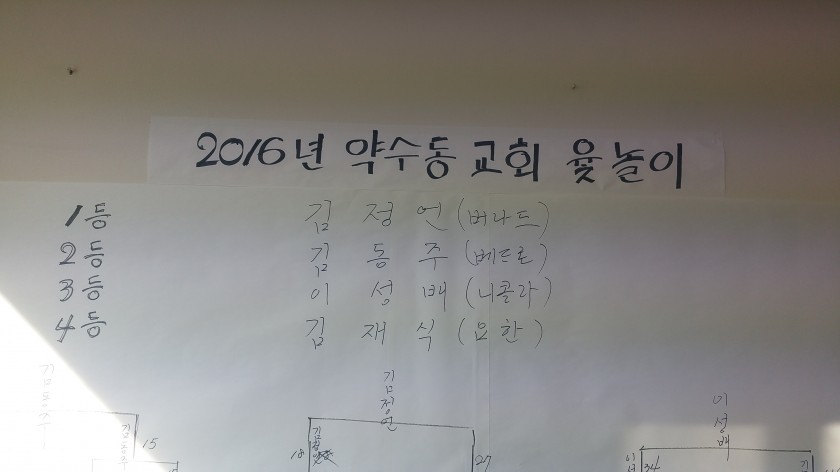 2016년 약수동 교회 윷놀이
1등 김정언(버나드)
2등 김동주(베드로)
3등 이성배(니콜라)
4등 김재식(요한)
김정언
이성배
15
18
27
34